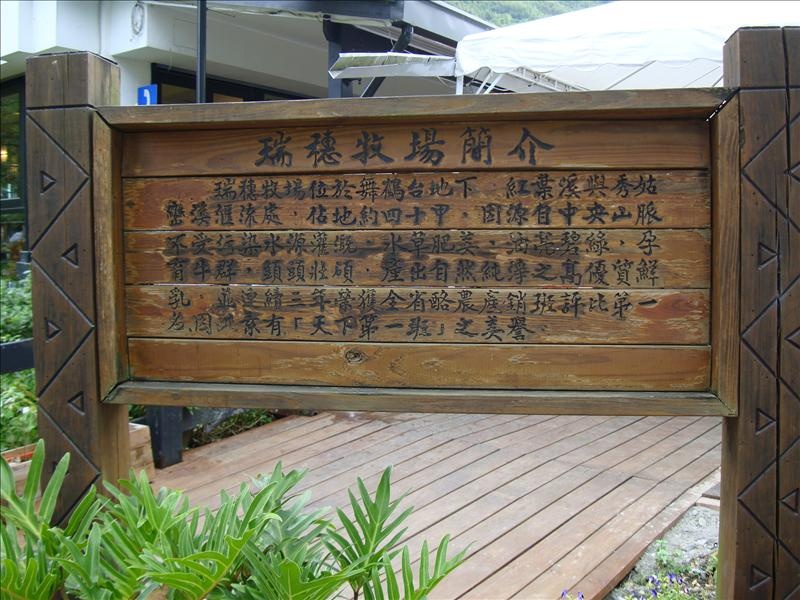 瑞穗牧場簡介
瑞穗牧場位於舞鶴台地下，紅葉溪與秀姑
巒溪滙流處，佔地約四十甲，因源自中央山脈
不受污染水源灌溉，水草肥美，碧綠，孕
育牛群，頭頭壯碩，產出自然純濃之高優質鮮
乳，並連續三年榮獲全省酪農產銷班評比第一
名，因此素有「天下第一班」之美譽。